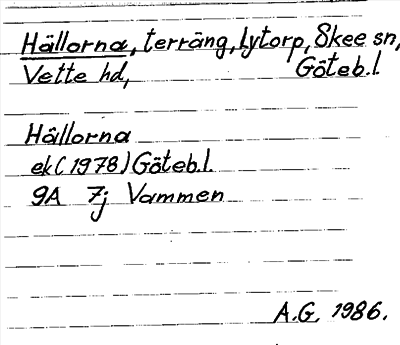 Hällorna, terräng, Lytorp, Skee sn,
Vette hd, Göteb.l.
Hällorna
ek (1978) Göteb.l.
9A 7j Vammen
A.G. 1986.